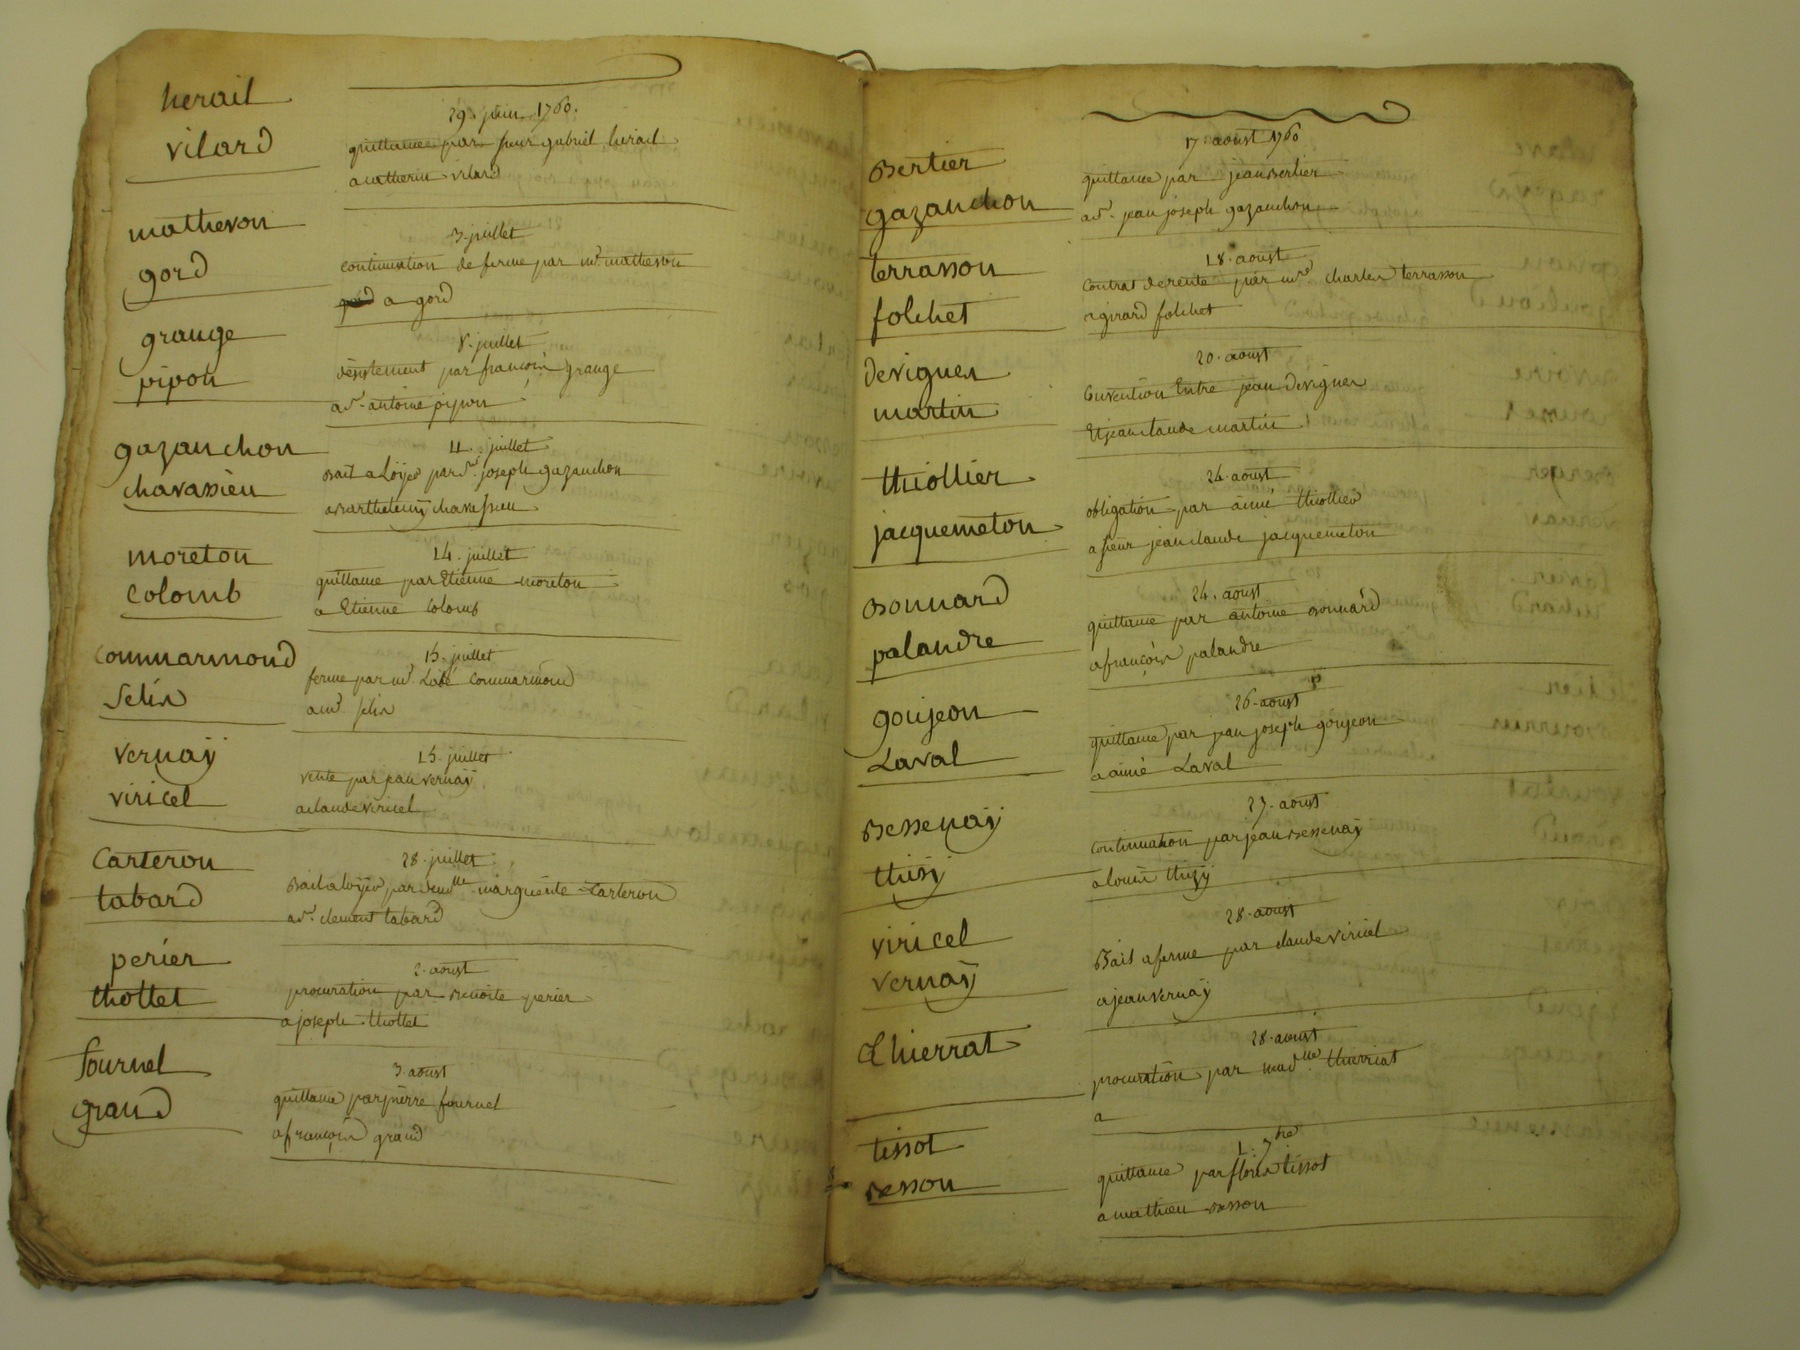 herail
vilard
29. juin 1760.
quittance par sieur gabriel herail
a catherin vilard
matheron
gord
3. juillet
continuation de ferme par mr. matheron
a gord
grange
pipon
8. juillet
desistement par françois grange
a sr. antoine pipon
gazanchon
chavassieu
11. juillet
Bail a Loÿer par sr. joseph gazanchon
a Barthelemÿ chavassieu
moreton
Colomb
14. juillet
quittance par Etienne moreton
a Etienne Colomb
Commarmond
Selin
15. juillet
ferme par mr. Labé Commarmond
a mr. Selin
vernaÿ
viricel
15. juillet
vente par jean vernaÿ
a claude viricel
Carteron
tabard
28. juillet
Bail a loÿer par demlle. marguerite Carteron
a sr. clement tabard
perier
thollet
2. aoust
procuration par Benoite perier
a joseph thollet
fournel
grand
3. aoust
quittance par pierre fournel
a françois grand
Bertier
gazanchon
17. aoust 1760
quittance par jean Bertier
a sr. jean joseph gazanchon
terrasson
folchet
18. aoust
Contrat de rente par mre. charles terrasson
a girard folchet
devignes
martin
20. aoust
Convention Entre jean devignes
Et jean claude martin
thiollier
jacquemeton
24. aoust
obligation par aimé thiollier
a sieur jean claude jacquemeton
Bonnard
palandre
24. aoust
quittance par antoine Bonnard
a françois palandre
goujeon
Laval
26. aoust
quittance par jean joseph goujeon
a aimé Laval
Bessenaÿ
thizÿ
27. aoust
continuation par jean Bessenaÿ
a louis thizÿ
viricel
vernaÿ
28. aoust
Bail a ferme par claude viricel
a jean vernaÿ
thierrat
28. aoust
procuration par madlle. thierriat
a
tissot
Besson
1. 7bre
quittance par fleurÿ tissot
a mathieu Besson